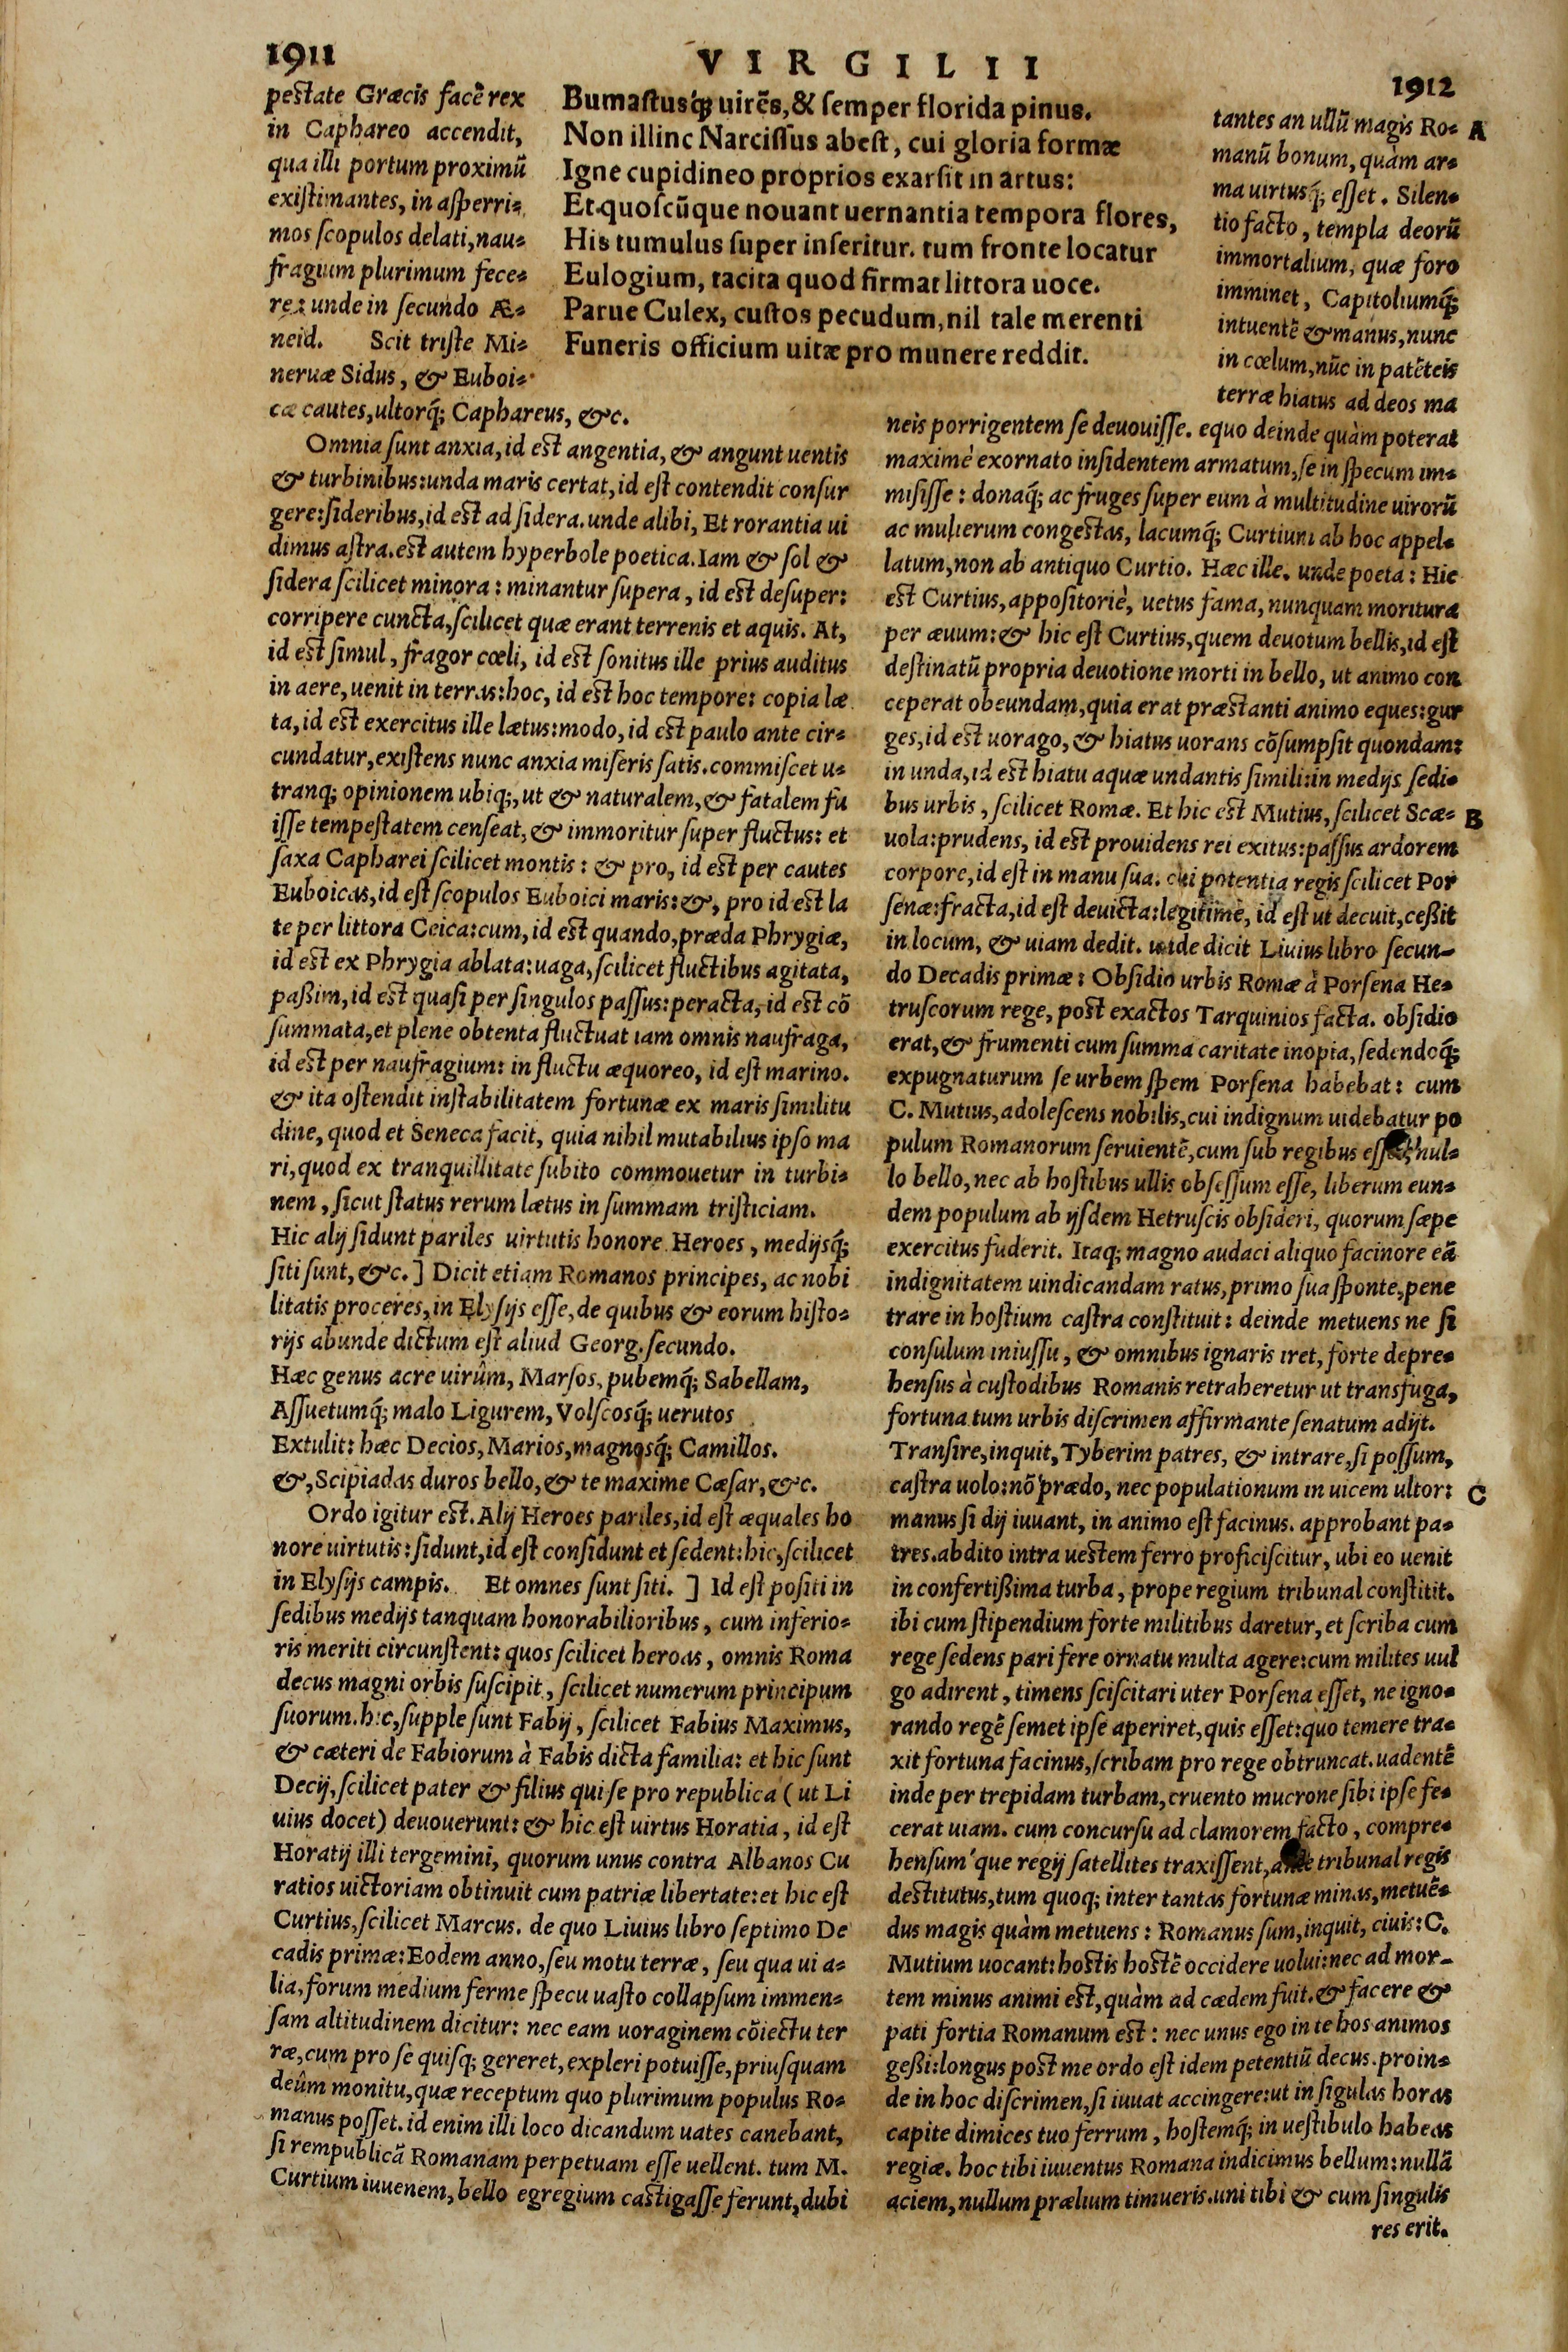 1911
VIRGILII
1912
pestate Græcis facē rex
in Caphareo accendit,
qua illi portum proximū
existimantes, in asperri-
mos scopulos delati, nau-
fragium plurimum fece-
re: unde in secundo Æ-
neid. Scit triste Mi-
neruæ Sidus, & Euboi-
cæ cautes, ultorq́; Caphareus, &c.
Bumastusq́; uirēs, & semper florida pinus.
Non illinc Narcissus abest, cui gloria formæ
Igne cupidineo proprios exarsit in artus:
Et quoscūque nouant uernantia tempora flores,
His tumulus super inseritur. tum fronte locatur
Eulogium, tacita quod firmat littora uoce.
Parue Culex, custos pecudum, nil tale merenti
Funeris officium uitæ pro munere reddit.
Omnia sunt anxia, id est angentia, & angunt uentis
& turbinibus: unda maris certat, id est contendit consur
gere: sideribus, id est ad sidera. unde alibi, Et rorantia ui
dimus astra. est autem hyperbole poetica. Iam & sol &
sidera scilicet minora: minantur supera, id est desuper:
corripere cuncta, scilicet quæ erant terrenis et aquis. At,
id est simul, fragor cœli, id est sonitus ille prius auditus
in aere, uenit in terras: hoc, id est hoc tempore: copia læ
ta, id est exercitus ille lætus: modo, id est paulo ante cir-
cundatur, existens nunc anxia miseris satis. commiscet u-
tranq; opinionem ubiq;, ut & naturalem, & fatalem fu
isse tempestatem censeat, & immoritur super fluctus: et
saxa Capharei scilicet montis: & pro, id est per cautes
Euboicas, id est scopulos Euboici maris: &, pro id est la
te per littora Ceica: cum, id est quando, præda Phrygiæ,
id est ex Phrygia ablata: uaga, scilicet fluctibus agitata,
paßim, id est quasi per singulos passus: peracta, id est cō
summata, et plene obtenta fluctuat iam omnis naufraga,
id est per naufragium: in fluctu æquoreo, id est marino.
& ita ostendit instabilitatem fortunæ ex maris similitu
dine, quod et Seneca facit, quia nihil mutabilius ipso ma
ri, quod ex tranquillitate subito commouetur in turbi-
nem, sicut status rerum lætus in summam tristiciam.
Hic alij sidunt pariles uirtutis honore Heroes, medijsq́;
siti sunt, &c.] Dicit etiam Romanos principes, ac nobi
litatis proceres, in Elysijs esse, de quibus & eorum histo-
rijs abunde dictum est aliud Georg. secundo.
Hæc genus acre uirûm, Marsos, pubemq́; Sabellam,
Assuetumq́; malo Ligurem, Volscosq́; uerutos
Extulit: hæc Decios, Marios, magnosq́; Camillos.
&, Scipiadas duros bello, & te maxime Cæsar, &c.
Ordo igitur est. Alij Heroes pariles, id est æquales ho
nore uirtutis: sidunt, id est considunt et sedent: hic, scilicet
in Elysijs campis. Et omnes sunt siti.] Id est positi in
sedibus medijs tanquam honorabilioribus, cum inferio-
ris meriti circunstent: quos scilicet heroas, omnis Roma
decus magni orbis suscipit, scilicet numerum principum
suorum. hic, supple sunt Fabij, scilicet Fabius Maximus,
& cæteri de Fabiorum à Fabis dicta familia: et hic sunt
Decij, scilicet pater & filius qui se pro republica (ut Li
uius docet) deuouerunt: & hic est uirtus Horatia, id est
Horatij illi tergemini, quorum unus contra Albanos Cu
ratios uictoriam obtinuit cum patriæ libertate: et hic est
Curtius, scilicet Marcus. de quo Liuius libro septimo De
cadis primæ: Eodem anno, seu motu terræ, seu qua ui a-
lia, forum medium ferme specu uasto collapsum immen-
sam altitudinem dicitur: nec eam uoraginem cōiectu ter
ræ, cum pro se quisq; gereret, expleri potuisse, priusquam
deûm monitu, quæ receptum quo plurimum populus Ro-
manus posset. id enim illi loco dicandum uates canebant,
si rempublicā Romanam perpetuam esse uellent. tum M.
Curtium iuuenem, bello egregium castigasse ferunt, dubi
tantes an ullū magis Ro-
A
manū bonum, quàm ar-
ma uirtusq́; esset. Silen-
tio facto, templa deorū
immortalium, quæ foro
imminet, Capitoliumq́;
intuentē & manus, nunc
in cœlum, nūc in patēteis
terræ hiatus ad deos ma
neis porrigentem se deuouisse. equo deinde quàm poterat
maximè exornato insidentem armatum, se in specum im-
misisse: donaq́; ac fruges super eum à multitudine uirorū
ac mulierum congestas, lacumq́; Curtium ab hoc appel-
latum, non ab antiquo Curtio. Hæc ille. unde poeta: Hic
est Curtius, appositoriè, uetus fama, nunquam moritura
per æuum: & hic est Curtius, quem deuotum bellis, id est
destinatū propria deuotione morti in bello, ut animo con
ceperat obeundam, quia erat præstanti animo eques: gur
ges, id est uorago, & hiatus uorans cōsumpsit quondam:
in unda, id est hiatu aquæ undantis simili: in medijs sedi-
bus urbis, scilicet Romæ. Et hic est Mutius, scilicet Scæ-
B
uola: prudens, id est prouidens rei exitus: passus ardorem
corpore, id est in manu sua. cui potentia regis scilicet Por
senæ: fracta, id est deuicta: legitimè, id est ut decuit, ceßit
in locum, & uiam dedit. unde dicit Liuius libro secun-
do Decadis primæ: Obsidio urbis Romæ à Porsena He-
truscorum rege, post exactos Tarquinios facta. obsidio
erat, & frumenti cum summa caritate inopia, sedendoq́;
expugnaturum se urbem spem Porsena habebat: cum
C. Mutius, adolescens nobilis, cui indignum uidebatur po
pulum Romanorum seruientē, cum sub regibus esset, nul-
lo bello, nec ab hostibus ullis obsessum esse, liberum eun-
dem populum ab ijsdem Hetruscis obsideri, quorum sæpe
exercitus fuderit. Itaq; magno audaci aliquo facinore eā
indignitatem uindicandam ratus, primo sua sponte, pene
trare in hostium castra constituit: deinde metuens ne si
consulum iniussu, & omnibus ignaris iret, forte depre-
hensus à custodibus Romanis retraheretur ut transfuga,
fortuna tum urbis discrimen affirmante senatum adijt.
Transire, inquit, Tyberim patres, & intrare, si possum,
castra uolo: nō prædo, nec populationum in uicem ultor:
C
manus si dij iuuant, in animo est facinus. approbant pa-
tres. abdito intra uestem ferro proficiscitur, ubi eo uenit
in confertißima turba, prope regium tribunal constitit.
ibi cum stipendium forte militibus daretur, et scriba cum
rege sedens pari fere ornatu multa agere: cum milites uul
go adirent, timens sciscitari uter Porsena esset, ne igno-
rando regē semet ipse aperiret, quis esset: quo temere tra-
xit fortuna facinus, scribam pro rege obtruncat. uadentē
inde per trepidam turbam, cruento mucrone sibi ipse fe-
cerat uiam. cum concursu ad clamorem facto, compre-
hensum'que regij satellites traxissent, ante tribunal regis
destitutus, tum quoq; inter tantas fortunæ minas, metuē-
dus magis quàm metuens: Romanus sum, inquit, ciuis: C.
Mutium uocant: hostis hostē occidere uolui: nec ad mor-
tem minus animi est, quàm ad cædem fuit. & facere &
pati fortia Romanum est: nec unus ego in te hos animos
geßi: longus post me ordo est idem petentiū decus. proin-
de in hoc discrimen, si iuuat accingere: ut in sigulas horas
capite dimices tuo ferrum, hostemq́; in uestibulo habeas
regiæ. hoc tibi iuuentus Romana indicimus bellum: nullā
aciem, nullum prælium timueris. uni tibi & cum singulis
res erit.